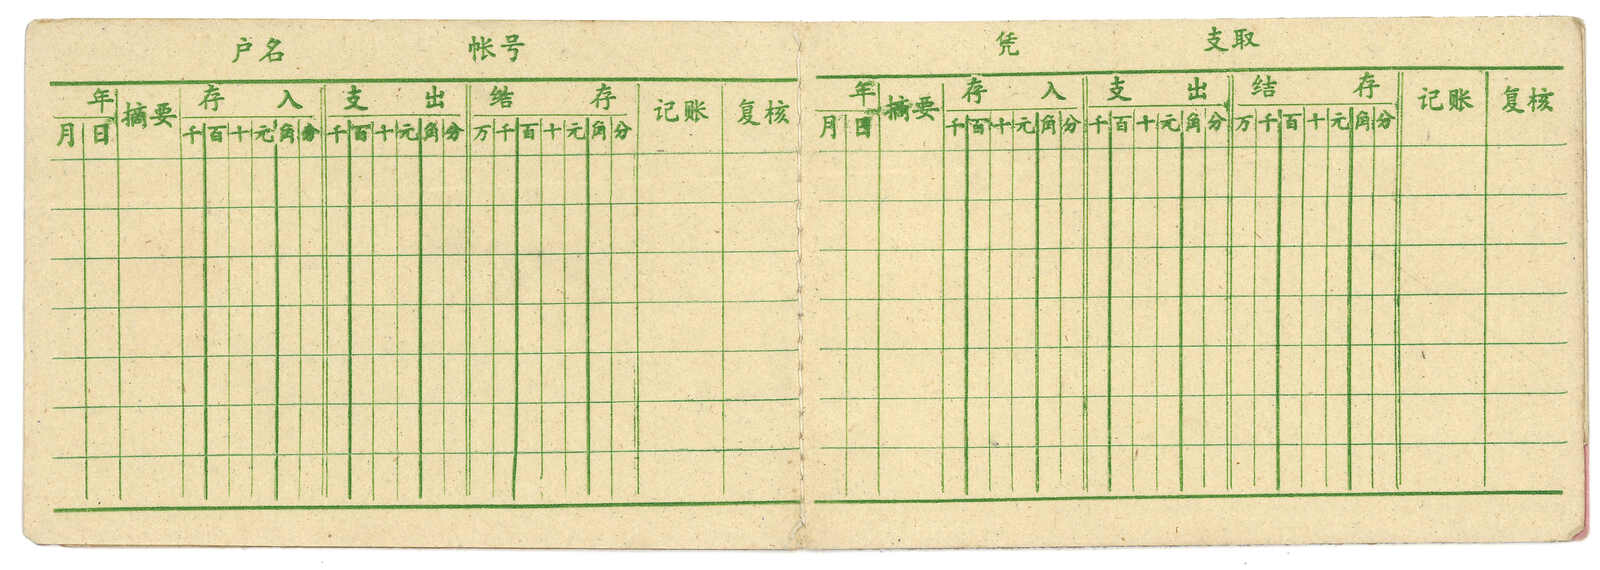 户名 帐号
年 摘要 存入 支出 结存 记账 复核
月 日 千 百 十 元 角 分 千 百 十 元 角 分 万 千 百 十 元 角 分
凭 支取
年 摘要 存入 支出 结存 记账 复核
月 日 千 百 十 元 角 分 千 百 十 元 角 分 万 千 百 十 元 角 分